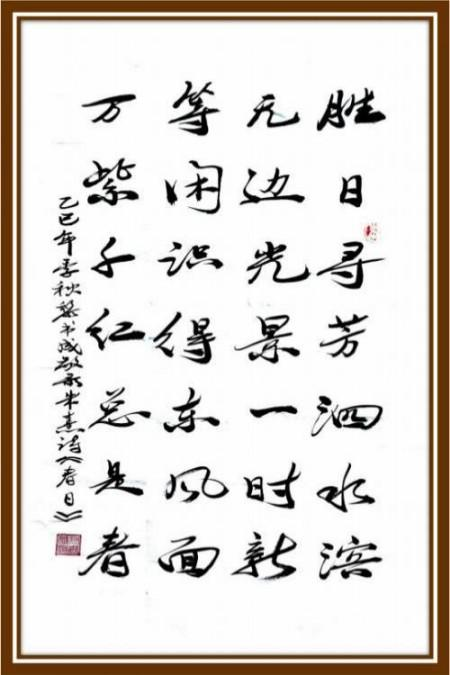 胜日寻芳泗水滨
无边光景一时新
等闲识得东风面
万紫千红总是春
乙巳年季秋黎书成敬录朱熹诗《春日》